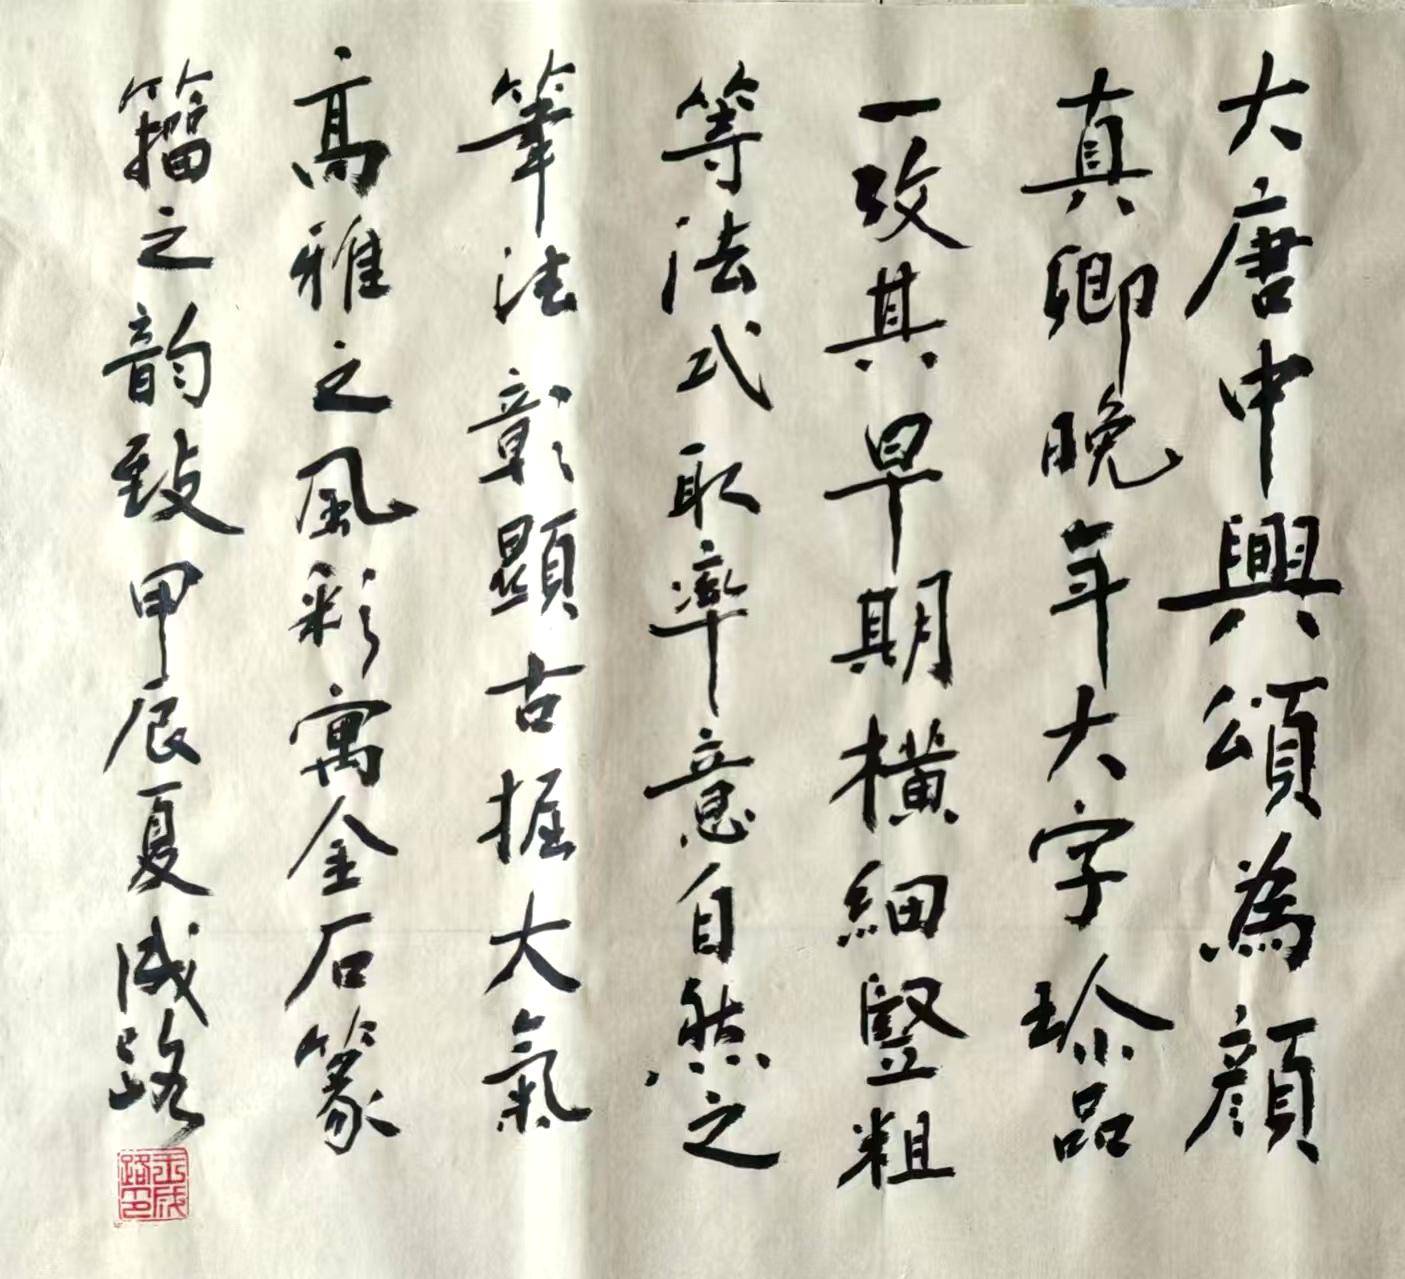 大唐中興頌為顏
真卿晚年大字珎品
一改其早期橫細豎粗
等法式取率意自然之
筆法彰顯古掘大氣
高雅之風彩寓金石篆
籀之韵致甲辰夏成路
王成路印